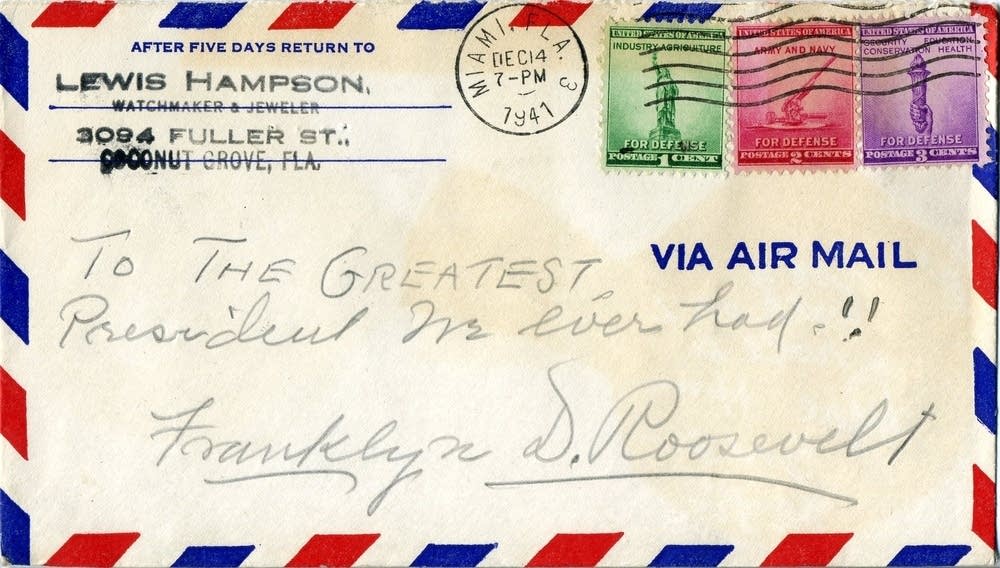 AFTER FIVE DAYS RETURN TO
LEWIS HAMPSON,
WATCHMAKER & JEWELER
3094 FULLER ST.,
COCONUT GROVE, FLA.
MIAMI, FLA. 3
DEC 14
7-PM
1941
UNITED STATES OF AMERICA
INDUSTRY AGRICULTURE
FOR DEFENSE
POSTAGE 1 CENT
UNITED STATES OF AMERICA
ARMY AND NAVY
FOR DEFENSE
POSTAGE 2 CENTS
UNITED STATES OF AMERICA
SECURITY EDUCATION
CONSERVATION HEALTH
FOR DEFENSE
POSTAGE 3 CENTS
VIA AIR MAIL
To THE GREATEST
President We ever had.!!
Franklyn D. Roosevelt